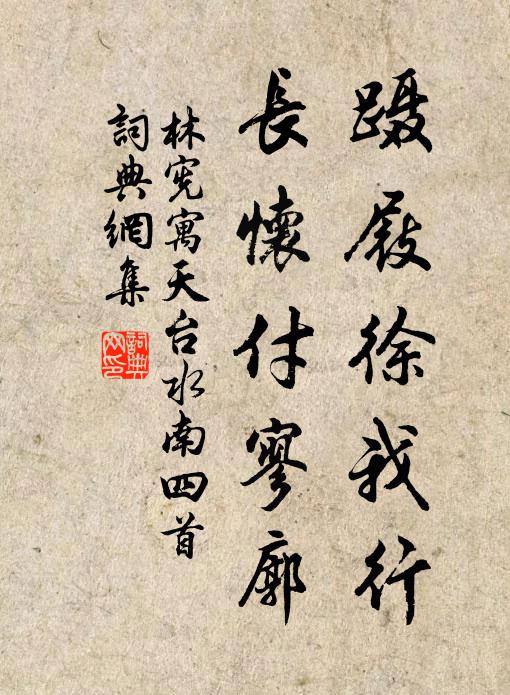 蹑屐徐我行
長懷付寥廓
林宪寓天台水南四首
詞典網集
詞典
网印